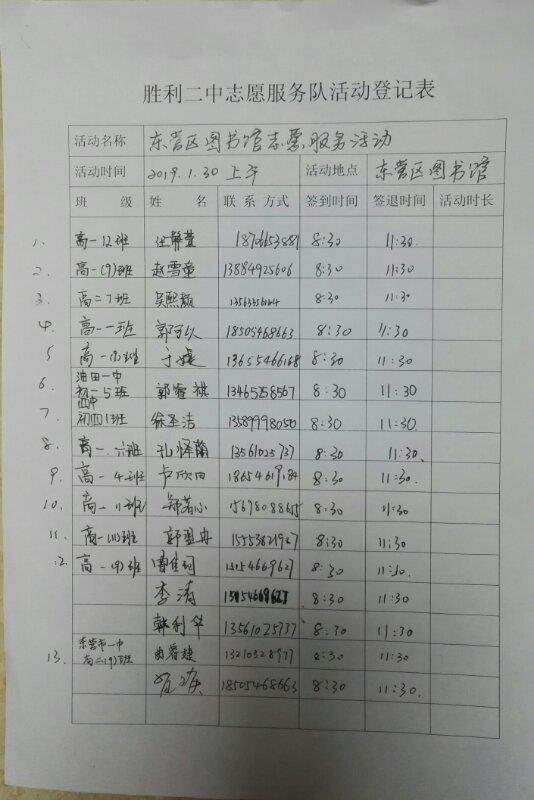 胜利二中志愿服务队活动登记表
活动名称 东营区图书馆志愿服务活动
活动时间 2019.1.30 上午 活动地点 东营区图书馆
班 级 姓 名 联系方式 签到时间 签退时间 活动时长
1. 高一12班 8:30 11:30
2. 高一(9)班 赵雪童 13884925606 8:30 11:30
3. 高二7班 8:30 11:30
4. 高一一班 郭可以 18505468663 8:30 11:30
5 高一 班 于媛 13655466168 8:30 11:30
6. 油田一中
初一5班 郭睿祺 13465258567 8:30 11:30
7. 初四13班 徐圣洁 13589998050 8:30 11:30
8. 高一.六班 孔怿菌 13561025737 8:30 11:30
9. 高一 4班 卢欣田 8:30 11:30
10. 高一 11班 郑若心 8:30 11:30
11. 高一 班 郭盈冉 8:30 11:30
12 高一 (9)班 曹佳珂 8:30 11:30
李涛 8:30 11:30
韩利华 13561025737 8:30 11:30
13. 东营市一中
高二(9)班 13210328977 8:30 11:30
18505468663 8:30 11:30